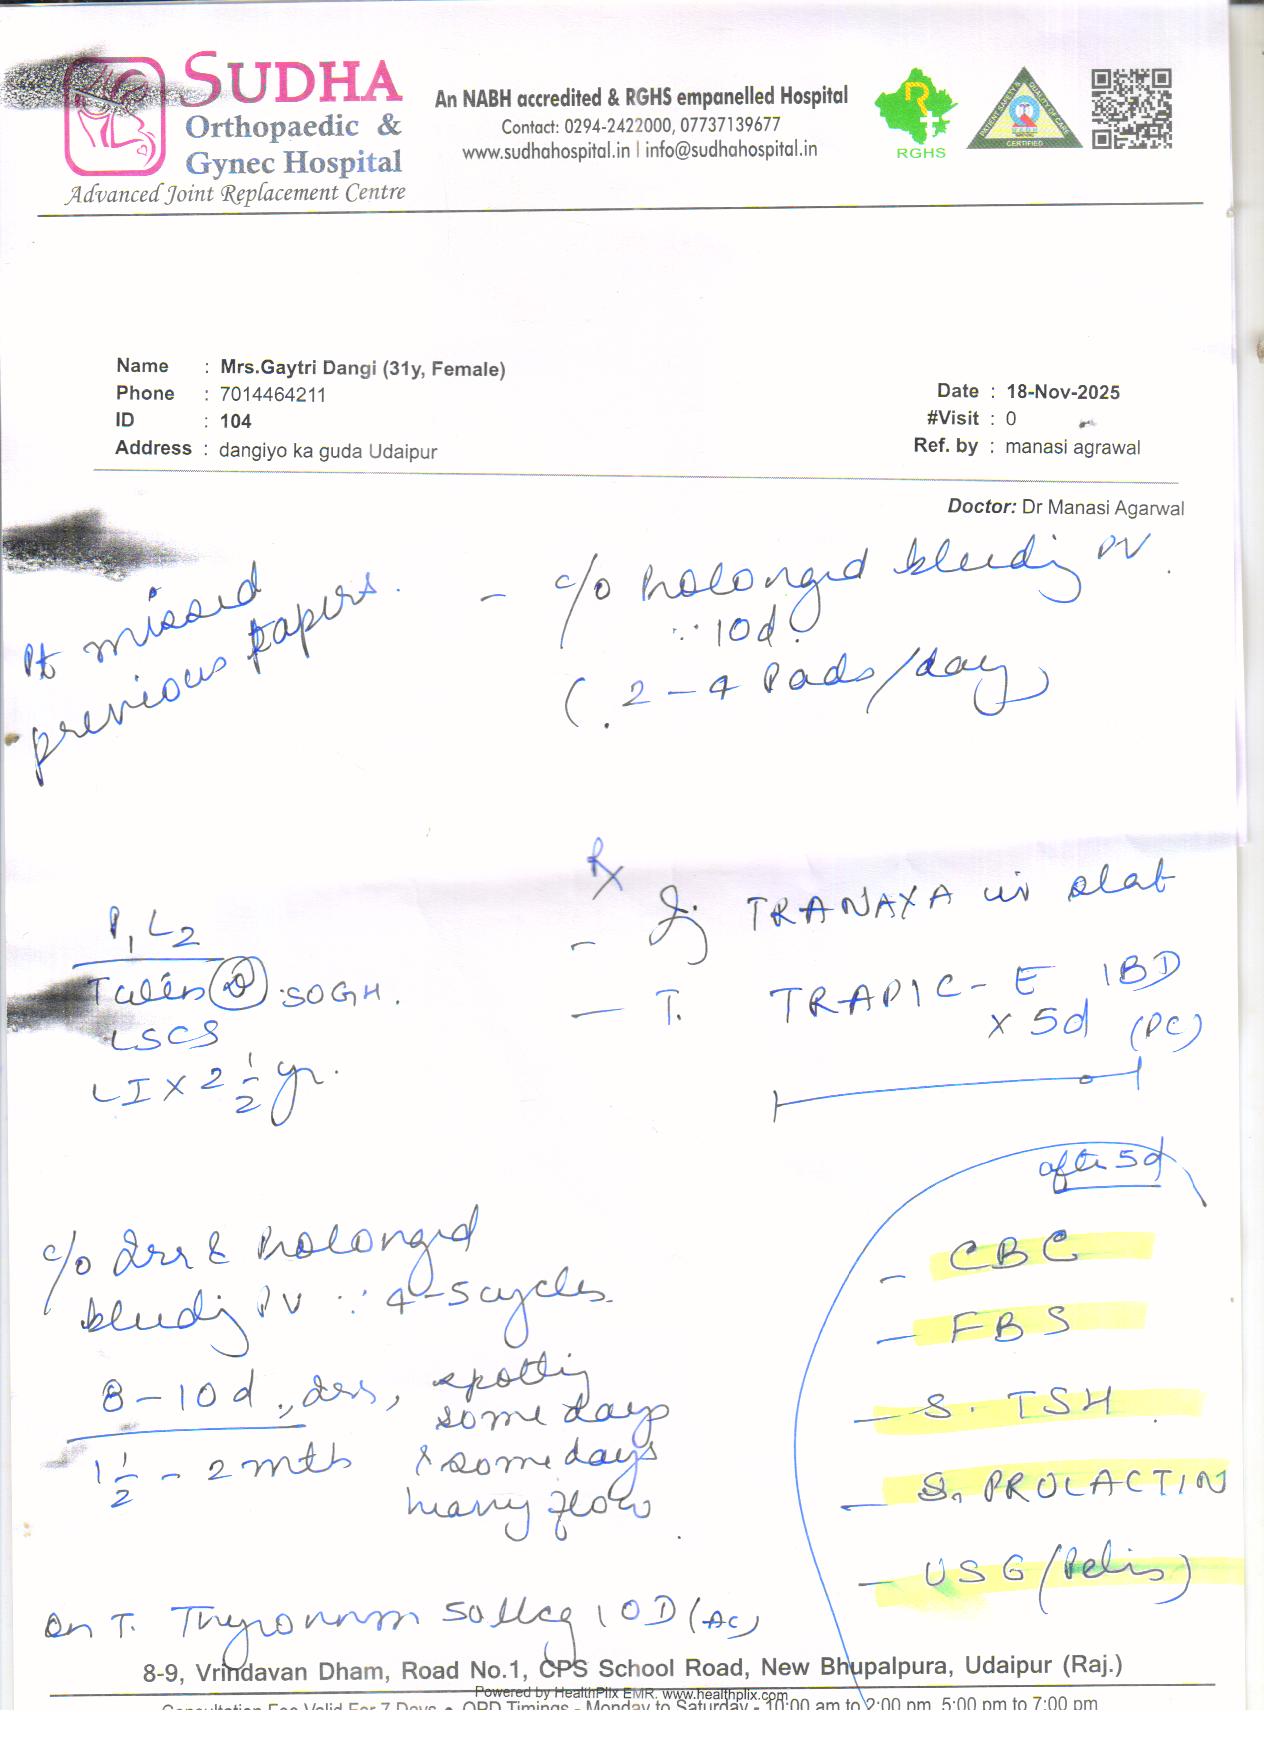 SUDHA
Orthopaedic &
Gynec Hospital
Advanced Joint Replacement Centre
An NABH accredited & RGHS empanelled Hospital
Contact: 0294-2422000, 07737139677
www.sudhahospital.in | info@sudhahospital.in
RGHS
PATIENT SAFETY & QUALITY OF CARE
CERTIFIED
Name : Mrs.Gaytri Dangi (31y, Female)
Phone : 7014464211
ID : 104
Address : dangiyo ka guda Udaipur
Date : 18-Nov-2025
#Visit : 0
Ref. by : manasi agrawal
Doctor: Dr Manasi Agarwal
Pt missed
previous papers.
- c/o Prolonged bleeding PV
∵ 10d.
(2-4 Pads/day)
Rx
- Inj TRANAXA iv stat
- T. TRAPIC-E 1BD
x 5d (PC)
P1L2
SOGH.
LSCS
LI x 2 1/2 yr.
after 5d
- CBC
- FBS
- S. TSH
- S. PROLACTIN
- USG (Pelvis)
c/o Irr & Prolonged
bleeding PV ∵ 4-5 cycles.
8-10d, Irr, spotting
some days
1 1/2 - 2 mth & some days
heavy flow.
On T. Thyronorm 50 mcg 1OD (AC)
8-9, Vrindavan Dham, Road No.1, CPS School Road, New Bhupalpura, Udaipur (Raj.)
Powered by HealthPlix EMR. www.healthplix.com
Consultation Fee Valid For 7 Days • OPD Timings - Monday to Saturday - 10:00 am to 2:00 pm, 5:00 pm to 7:00 pm